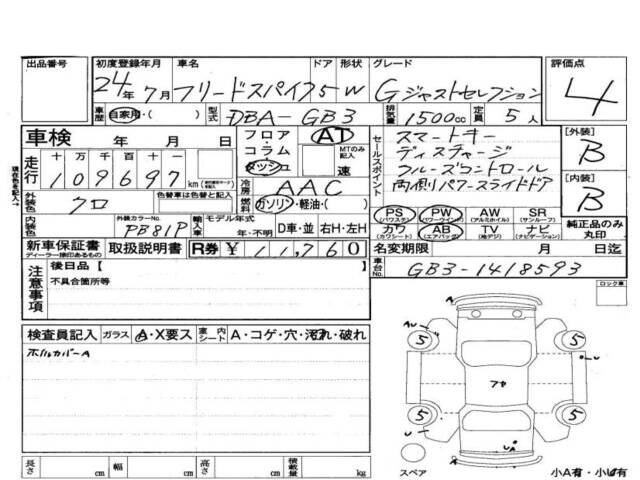 出品番号 初度登録年月 車名 ドア 形状 グレード 評価点
24年7月 フリードスパイク 5 W Gジャストセレクション 4
車歴 自家用・( ) 型式 DBA-GB3 排気量 1500cc 定員 5人
車検 年 月 日 フロア・コラム ダッシュ AT MTのみ記入 速
セールスポイント スマートキー
ディスチャージ
クルーズコントロール
両側パワースライドドア
[外装] B
[内装] B
走行 十 万 千 百 十 一
109697 km
冷房 AAC
外装色 クロ 色替車は色替前の色 燃料 ガソリン・軽油・( )
PS (パワステ) PW (パワーウインド) AW (アルミホイル) SR (サンルーフ)
カワ (カワシート) AB (エアバッグ) TV (地デジ) ナビ (ナビゲーション)
純正品のみ丸印
内装色 外装カラーNo. PB81P 輸入車 モデル年式 年・不明 D車・並 右H・左H
新車保証書 ディーラー捺印あるもの 取扱説明書 R券 ¥ 11,760 名変期限 月 日迄
車台No. GB3-1418593
注意事項 後日品【 】
不具合箇所等
ロック車
検査員記入 ガラス A・X要ス 車内シート A・コゲ・穴・汚れ・破れ
ホイルカバーA
A
AU
5 5
U
フヤ
5 5
UA
A
スペア
小A有・小U有
長さ cm 幅 cm 高さ cm 積載量 kg